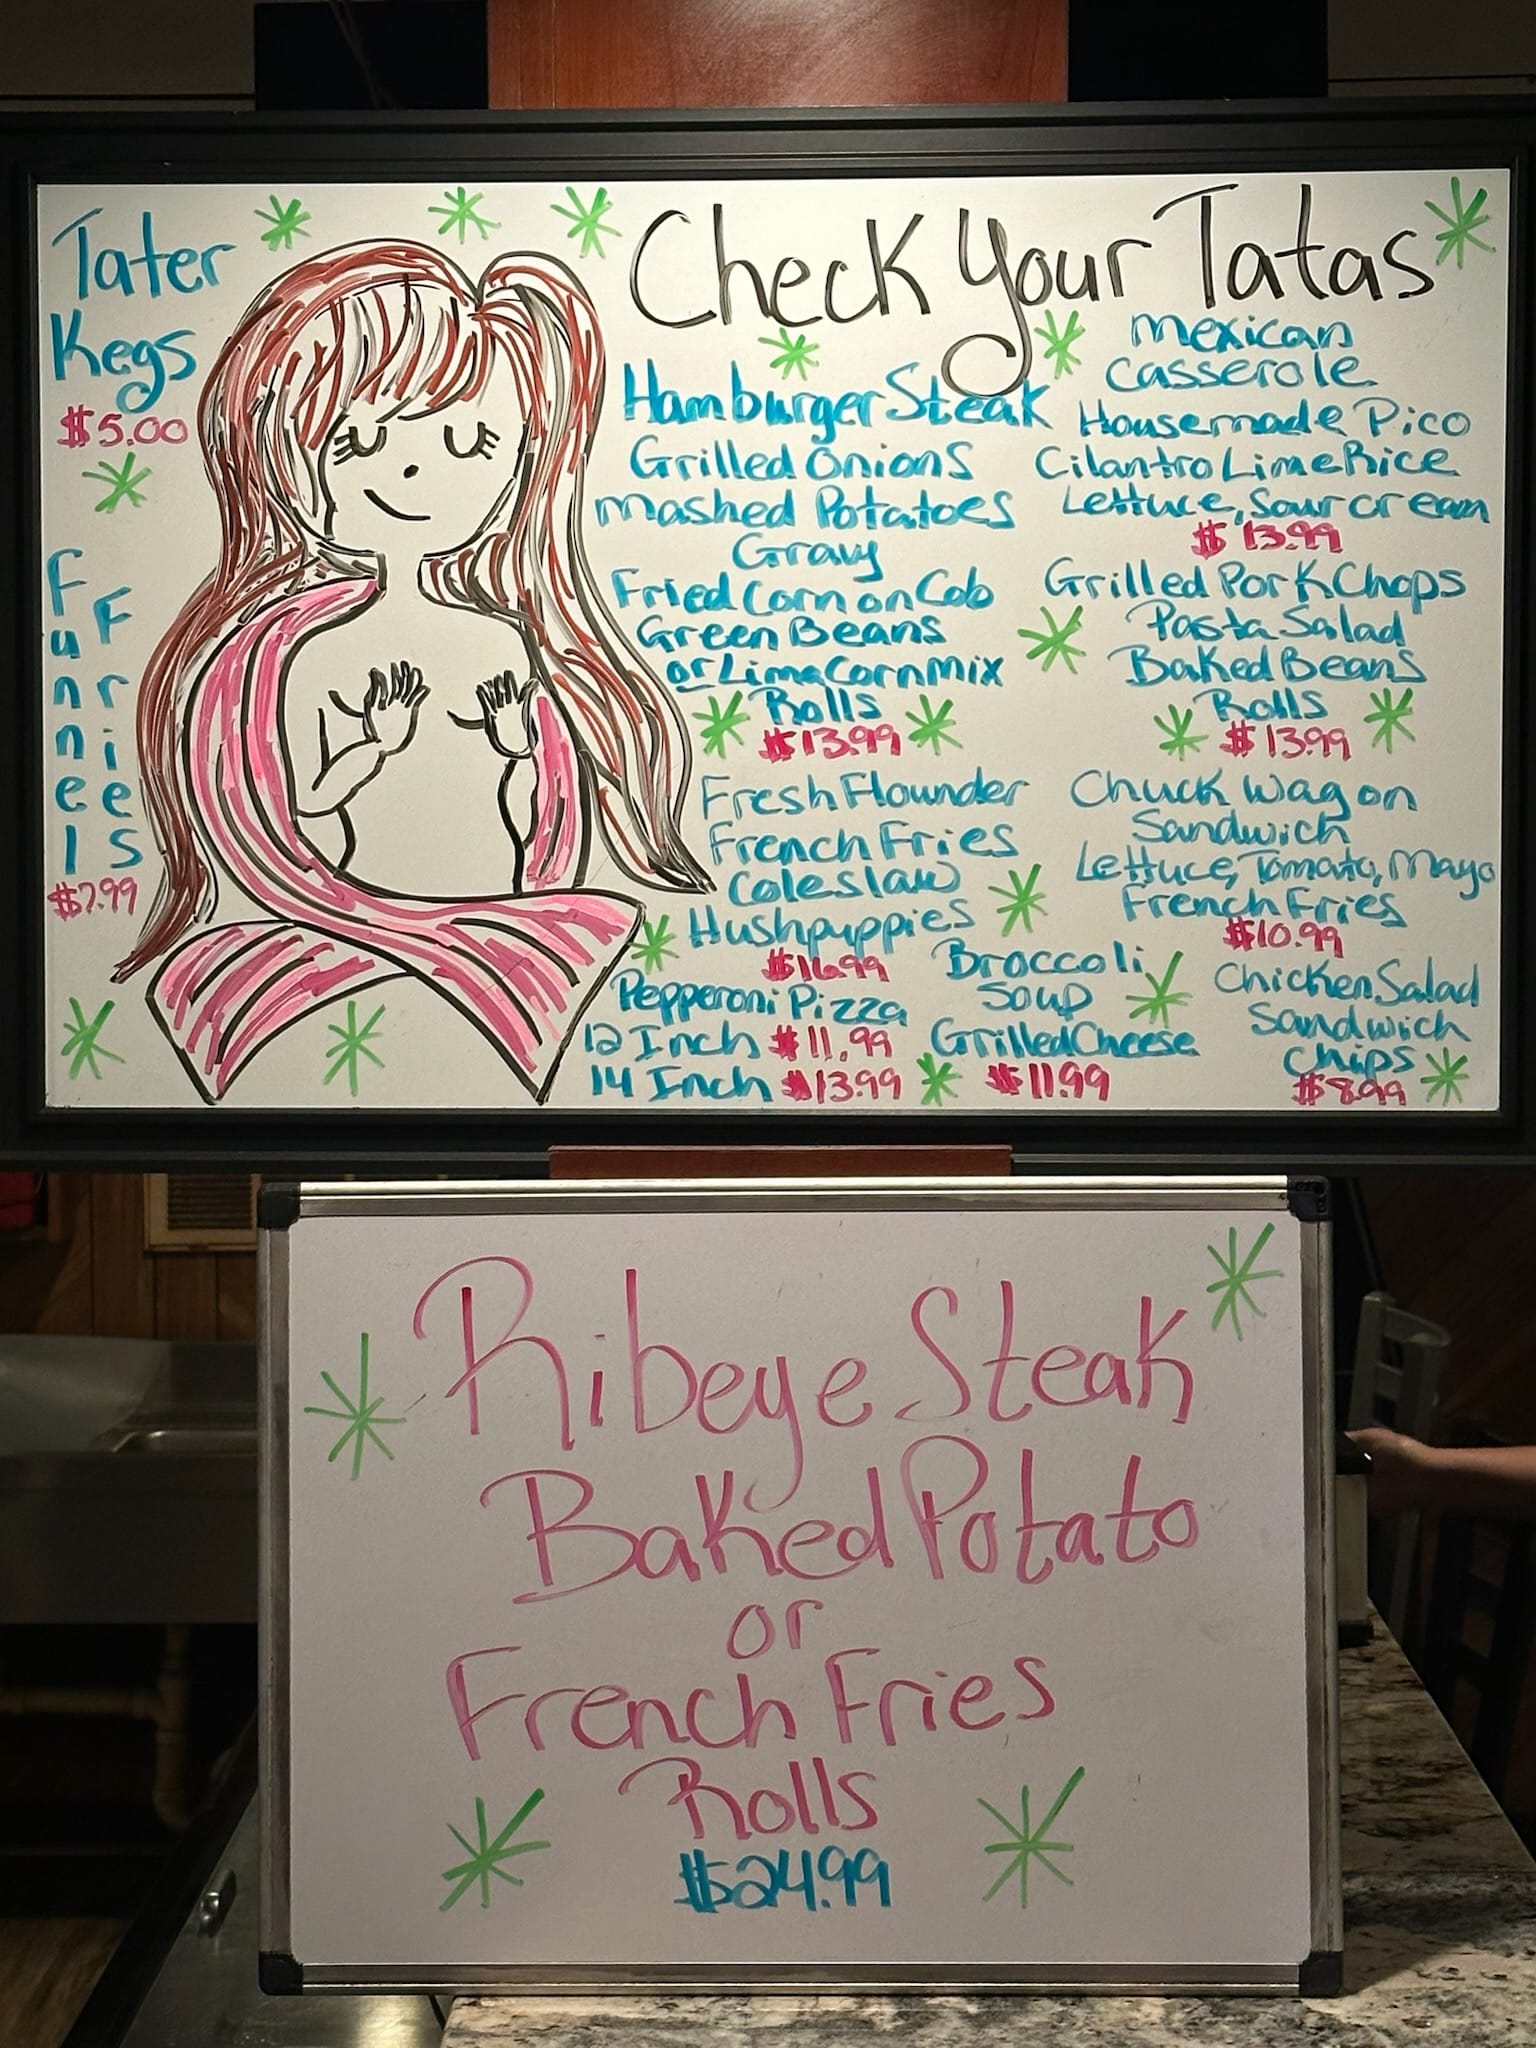 Tater
Kegs
$5.00
Funnel
Fries
$7.99
Check Your Tatas
Hamburger Steak
Grilled Onions
Mashed Potatoes
Gravy
Fried Corn on Cob
Green Beans
or Lima Corn Mix
Rolls
$13.99
Fresh Flounder
French Fries
Coleslaw
Hushpuppies
$16.99
Pepperoni Pizza
12 Inch $11.99
14 Inch $13.99
Mexican
Casserole
Housemade Pico
Cilantro Lime Rice
Lettuce, Sour cream
$13.99
Grilled Pork Chops
Pasta Salad
Baked Beans
Rolls
$13.99
Chuck Wagon
Sandwich
Lettuce, Tomato, Mayo
French Fries
$10.99
Broccoli
Soup
Grilled Cheese
$11.99
Chicken Salad
Sandwich
Chips
$8.99
Ribeye Steak
Baked Potato
or
French Fries
Rolls
$24.99